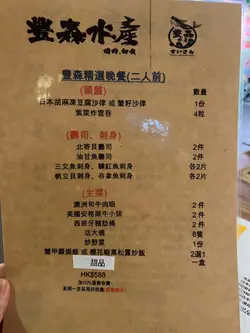 豐森水產
燒肉．刺身
豐森
せいさん
豐森精選晚餐(二人前)
(頭盤) 數量
日本胡麻凍豆腐沙律 或 蟹籽沙律 1份
紫菜炸響卷 4粒
(壽司、刺身)
北寄貝壽司 2件
油甘魚壽司 2件
三文魚刺身、鱲紅魚刺身 各2片
帆立貝刺身、吞拿魚刺身 各2片
(主菜)
澳洲和牛肉眼 2件
美國安格斯牛小排 2件
西班牙豬肋條 2件
活大蜆 8隻
炒野菜 1份
蟹甲羅焗飯 或 櫻花蝦黑松露炒飯 2選1
甜品 一盒
HK$588
加10%服務收費